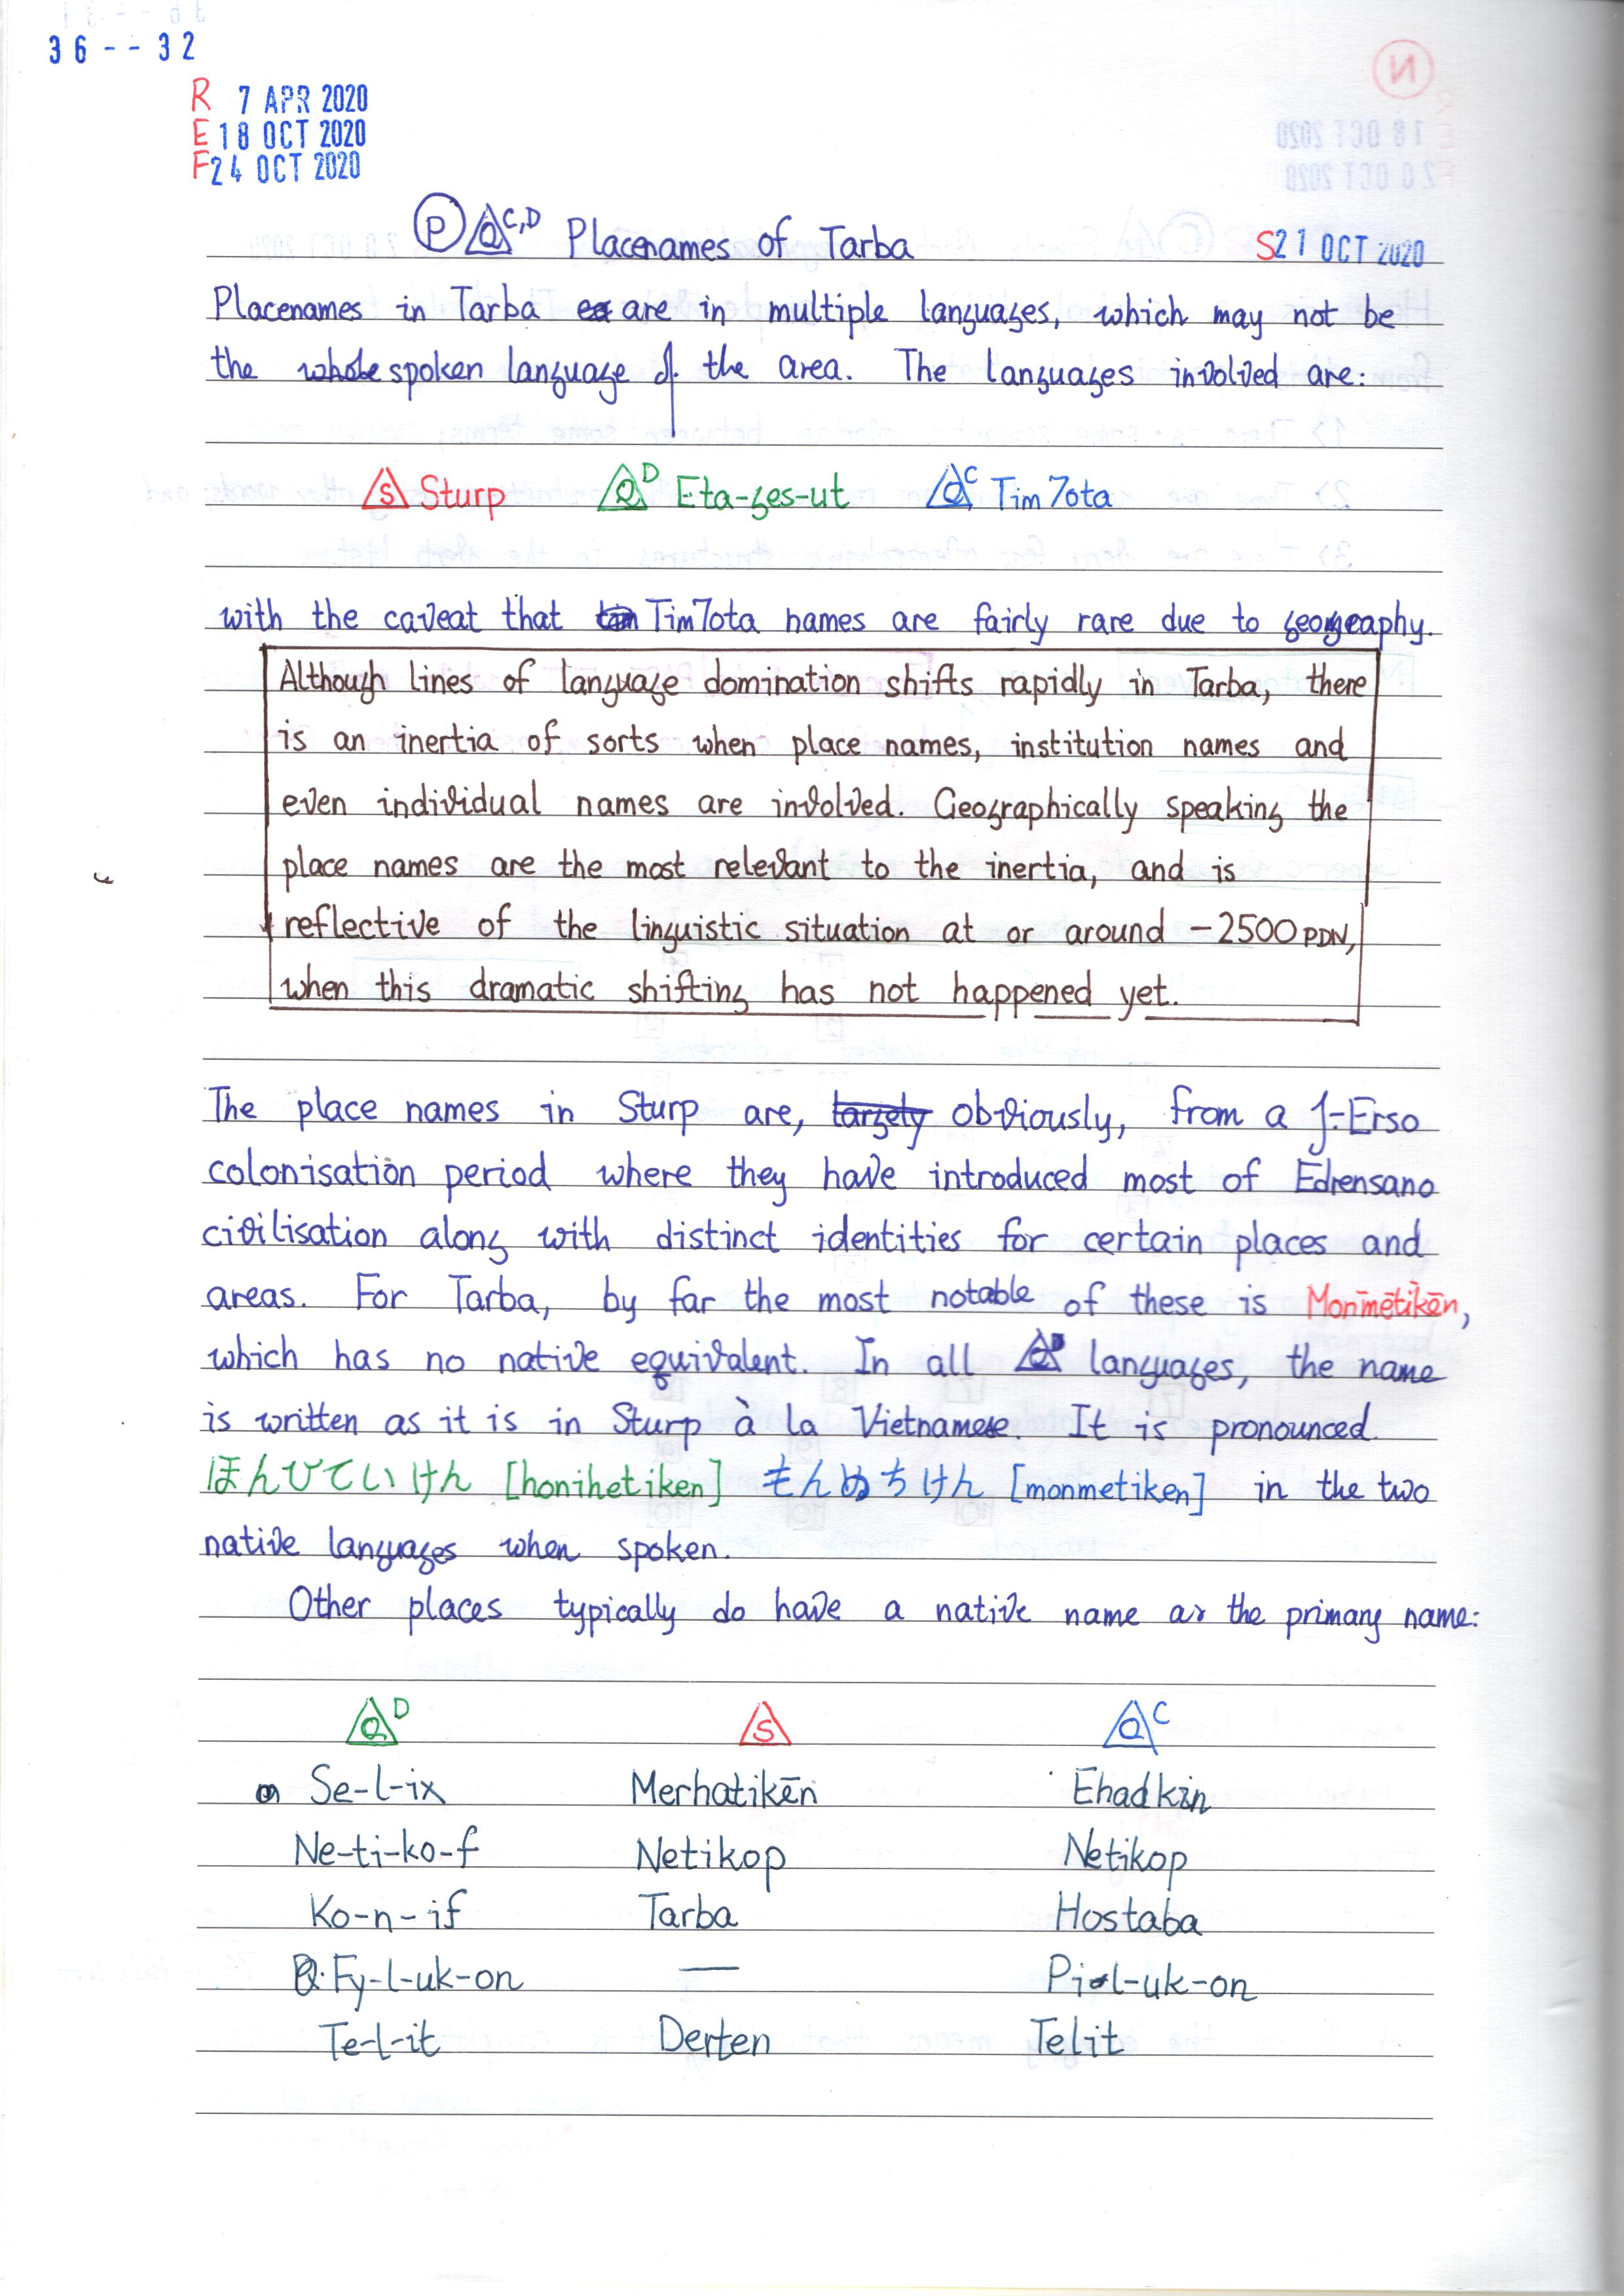 36--32
R 7 APR 2020
E 18 OCT 2020
F 24 OCT 2020
P Q C,D Placenames of Tarba S 21 OCT 2020
Placenames in Tarba are in multiple languages, which may not be
the spoken language of the area. The languages involved are:
S Sturp Q D Eta-ges-ut Q C Tim7ota
with the caveat that Tim7ota names are fairly rare due to geography.
Although lines of language domination shifts rapidly in Tarba, there
is an inertia of sorts when place names, institution names and
even individual names are involved. Geographically speaking the
place names are the most relevant to the inertia, and is
reflective of the linguistic situation at or around -2500 PDN,
when this dramatic shifting has not happened yet.
The place names in Sturp are, largely obviously, from a J:-Erso
colonisation period where they have introduced most of Edrensano
civilisation along with distinct identities for certain places and
areas. For Tarba, by far the most notable of these is Monmētikēn,
which has no native equivalent. In all Q languages, the name
is written as it is in Sturp à la Vietnamese. It is pronounced
ほんひてぃけん [honihetiken] もんめちけん [monmetiken] in the two
native languages when spoken.
Other places typically do have a native name as the primary name:
Q D S Q C
Se-l-ix Merhatikēn Ehadkin
Ne-ti-ko-f Netikop Netikop
Ko-n-if Tarba Hostaba
Fy-l-uk-on — Pi-l-uk-on
Te-l-it Derten Telit